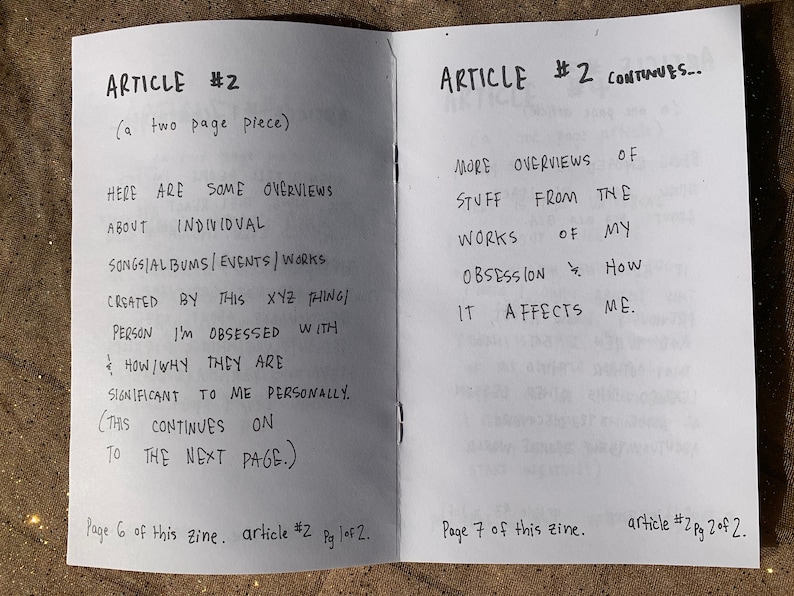 ARTICLE #2
(a two page piece)
HERE ARE SOME OVERVIEWS
ABOUT INDIVIDUAL
SONGS/ALBUMS/EVENTS/WORKS
CREATED BY THIS XYZ THING/
PERSON I'M OBSESSED WITH
& HOW/WHY THEY ARE
SIGNIFICANT TO ME PERSONALLY.
(THIS CONTINUES ON
TO THE NEXT PAGE.)
Page 6 of this zine. article #2 pg 1 of 2.
ARTICLE #2 CONTINUES...
MORE OVERVIEWS OF
STUFF FROM THE
WORKS OF MY
OBSESSION & HOW
IT AFFECTS ME.
Page 7 of this zine. article #2 pg 2 of 2.